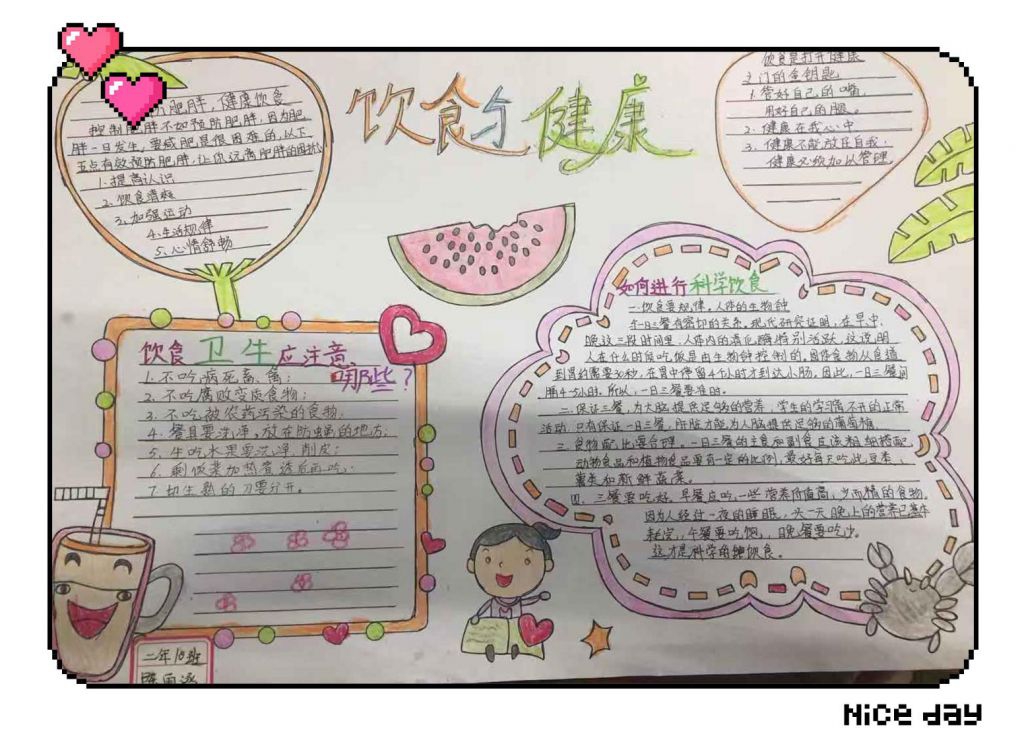 饮食与健康
肥胖，健康饮食
控制肥胖不如预防肥胖，因为肥
胖一旦发生，要减肥是很困难的，以下
五点有效预防肥胖，让你远离肥胖的困扰
1.提高认识
2.饮食清淡
3.加强运动
4.生活规律
5.心情舒畅
饮食是打开健康
之门的金钥匙
1.管好自己的嘴，
用好自己的腿。
2.健康在我心中
3.健康不能放任自我，
健康必须加以管理
饮食卫生应注意
哪些？
1.不吃病死畜、禽；
2.不吃腐败变质食物；
3.不吃被农药污染的食物；
4.餐具要洗净，放在防蝇的地方；
5.生吃水果要洗净、削皮；
6.剩饭菜加热煮透后再吃；
7.切生熟的刀要分开。
如何进行科学饮食
一.饮食要规律。人体的生物钟
与一日三餐有密切的关系。现代研究证明，在早、中、
晚这三段时间里，人体内的消化酶特别活跃，这说明
人在什么时候吃饭是由生物钟控制的。固体食物从食道
到胃约需要30秒，在胃中停留4个小时才到达小肠。因此，一日三餐间
隔4-5小时。所以，一日三餐要准时。
二.保证三餐，为大脑提供足够的营养，学生的学习离不开的正常
活动，只有保证一日三餐，肝脏才能为大脑提供足够的葡萄糖
三.食物配比要合理。一日三餐的主食和副食应该粗细搭配，
动物食品和植物食品要有一定的比例，最好每天吃些豆类、
薯类和新鲜蔬菜。
四.三餐要吃好，早餐应吃一些营养价值高、少而精的食物。
因为人经过一夜的睡眠，头一天晚上的营养已基本
耗完，午餐要吃饱，晚餐要吃少。
这才是科学的饮食。
二年10班
Nice day